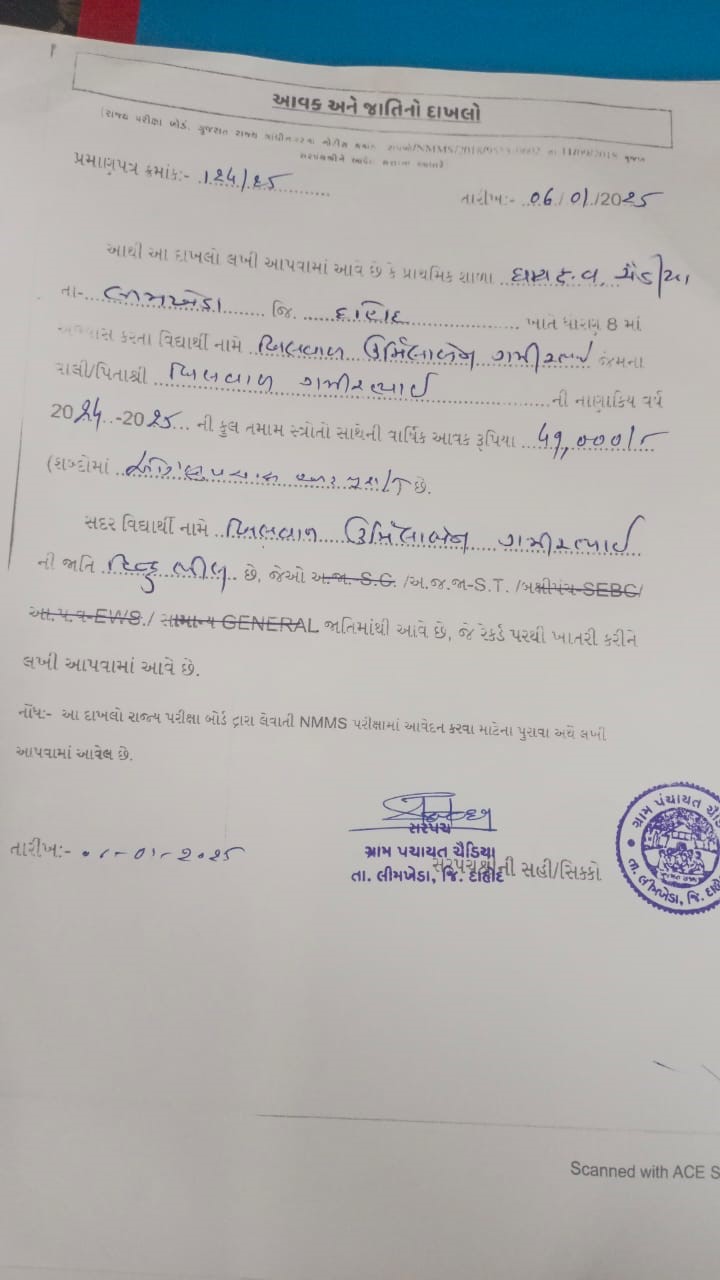 આવક અને જાતિનો દાખલો
(રાજ્ય પરીક્ષા બોર્ડ, ગુજરાત રાજ્ય
પ્રમાણપત્ર ક્રમાંક:- 124/25
તારીખ:- 06/01/2025
આથી આ દાખલો લખી આપવામાં આવે છે કે પ્રાથમિક શાળા
તા- લીમખેડા જિ. દાહોદ ખાતે ધોરણ 8 માં
અભ્યાસ કરતા વિદ્યાર્થી નામે ખિલવાળ ઉર્મિલાબેન ગમીરભાઈ જેમના
વાલી/પિતાશ્રી ખિલવાળ ગમીરભાઈ ની નાણાકિય વર્ષ
2024-2025 ની કુલ તમામ સ્ત્રોતો સાથેની વાર્ષિક આવક રૂપિયા 49,000/-
(શબ્દોમાં છે.
સદર વિદ્યાર્થી નામે ખિલવાળ ઉર્મિલાબેન ગમીરભાઈ
ની જાતિ હિન્દુ ભીલ છે, જેઓ અ.જા. S.C. /અ.જ.જા-S.T. /બક્ષીપંચ-SEBC/
આ.પ.વ-EWS./ સામાન્ય GENERAL જાતિમાંથી આવે છે, જે રેકર્ડ પરથી ખાતરી કરીને
લખી આપવામાં આવે છે.
નોંધ:- આ દાખલો રાજ્ય પરીક્ષા બોર્ડ દ્વારા લેવાતી NMMS પરીક્ષામાં આવેદન કરવા માટેના પુરાવા અર્થે લખી
આપવામાં આવેલ છે.
તારીખ:- -01-2025
સરપંચ
ગ્રામ પંચાયત ચૈડિયા
સરપંચશ્રીની સહી/સિક્કો
તા. લીમખેડા, જિ. દાહોદ
ગ્રામ પંચાયત
તા. લીમખેડા, જિ.
Scanned with ACE S